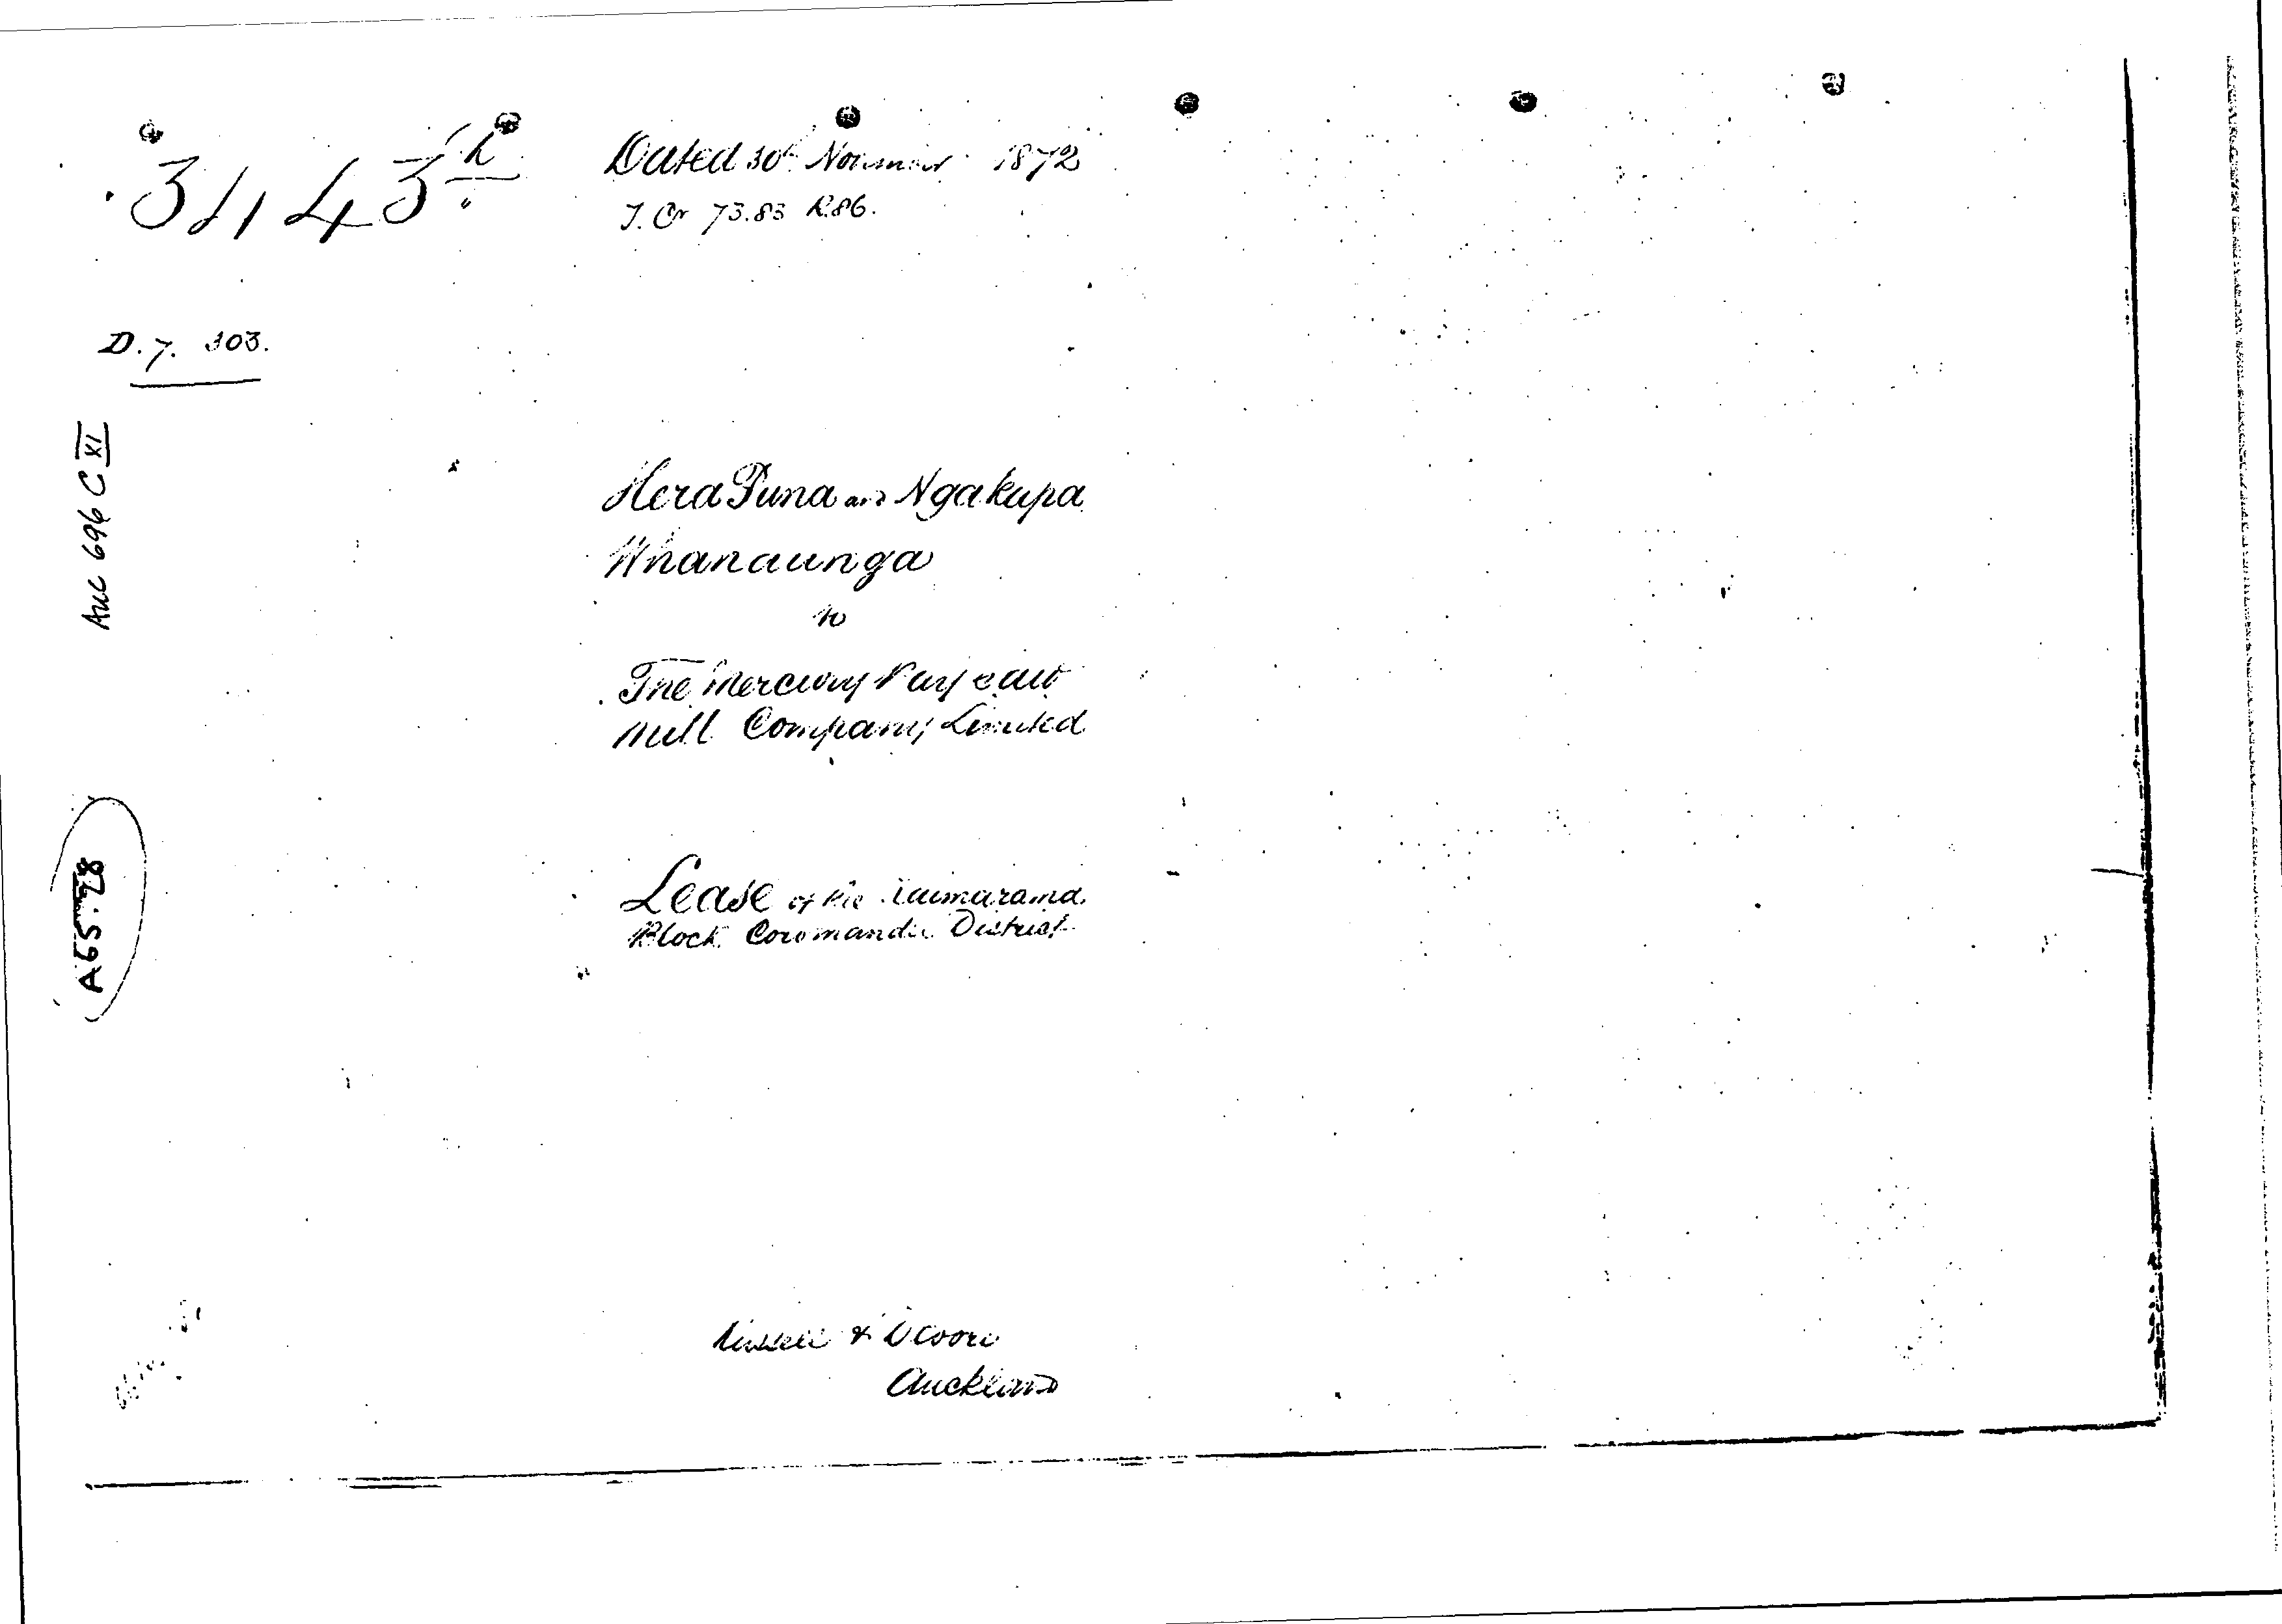 Dated 30th November 1872
T. Cr 73.83 R86.
D. 7. 303.
Auc 696 C XI
Hera Puna and Ngakapa
Whanaunga
to
The Mercury Bay Saw
Mill Company Limited
A65.28
Lease of the
Block Coromandel District
Russell & Devore
Auckland